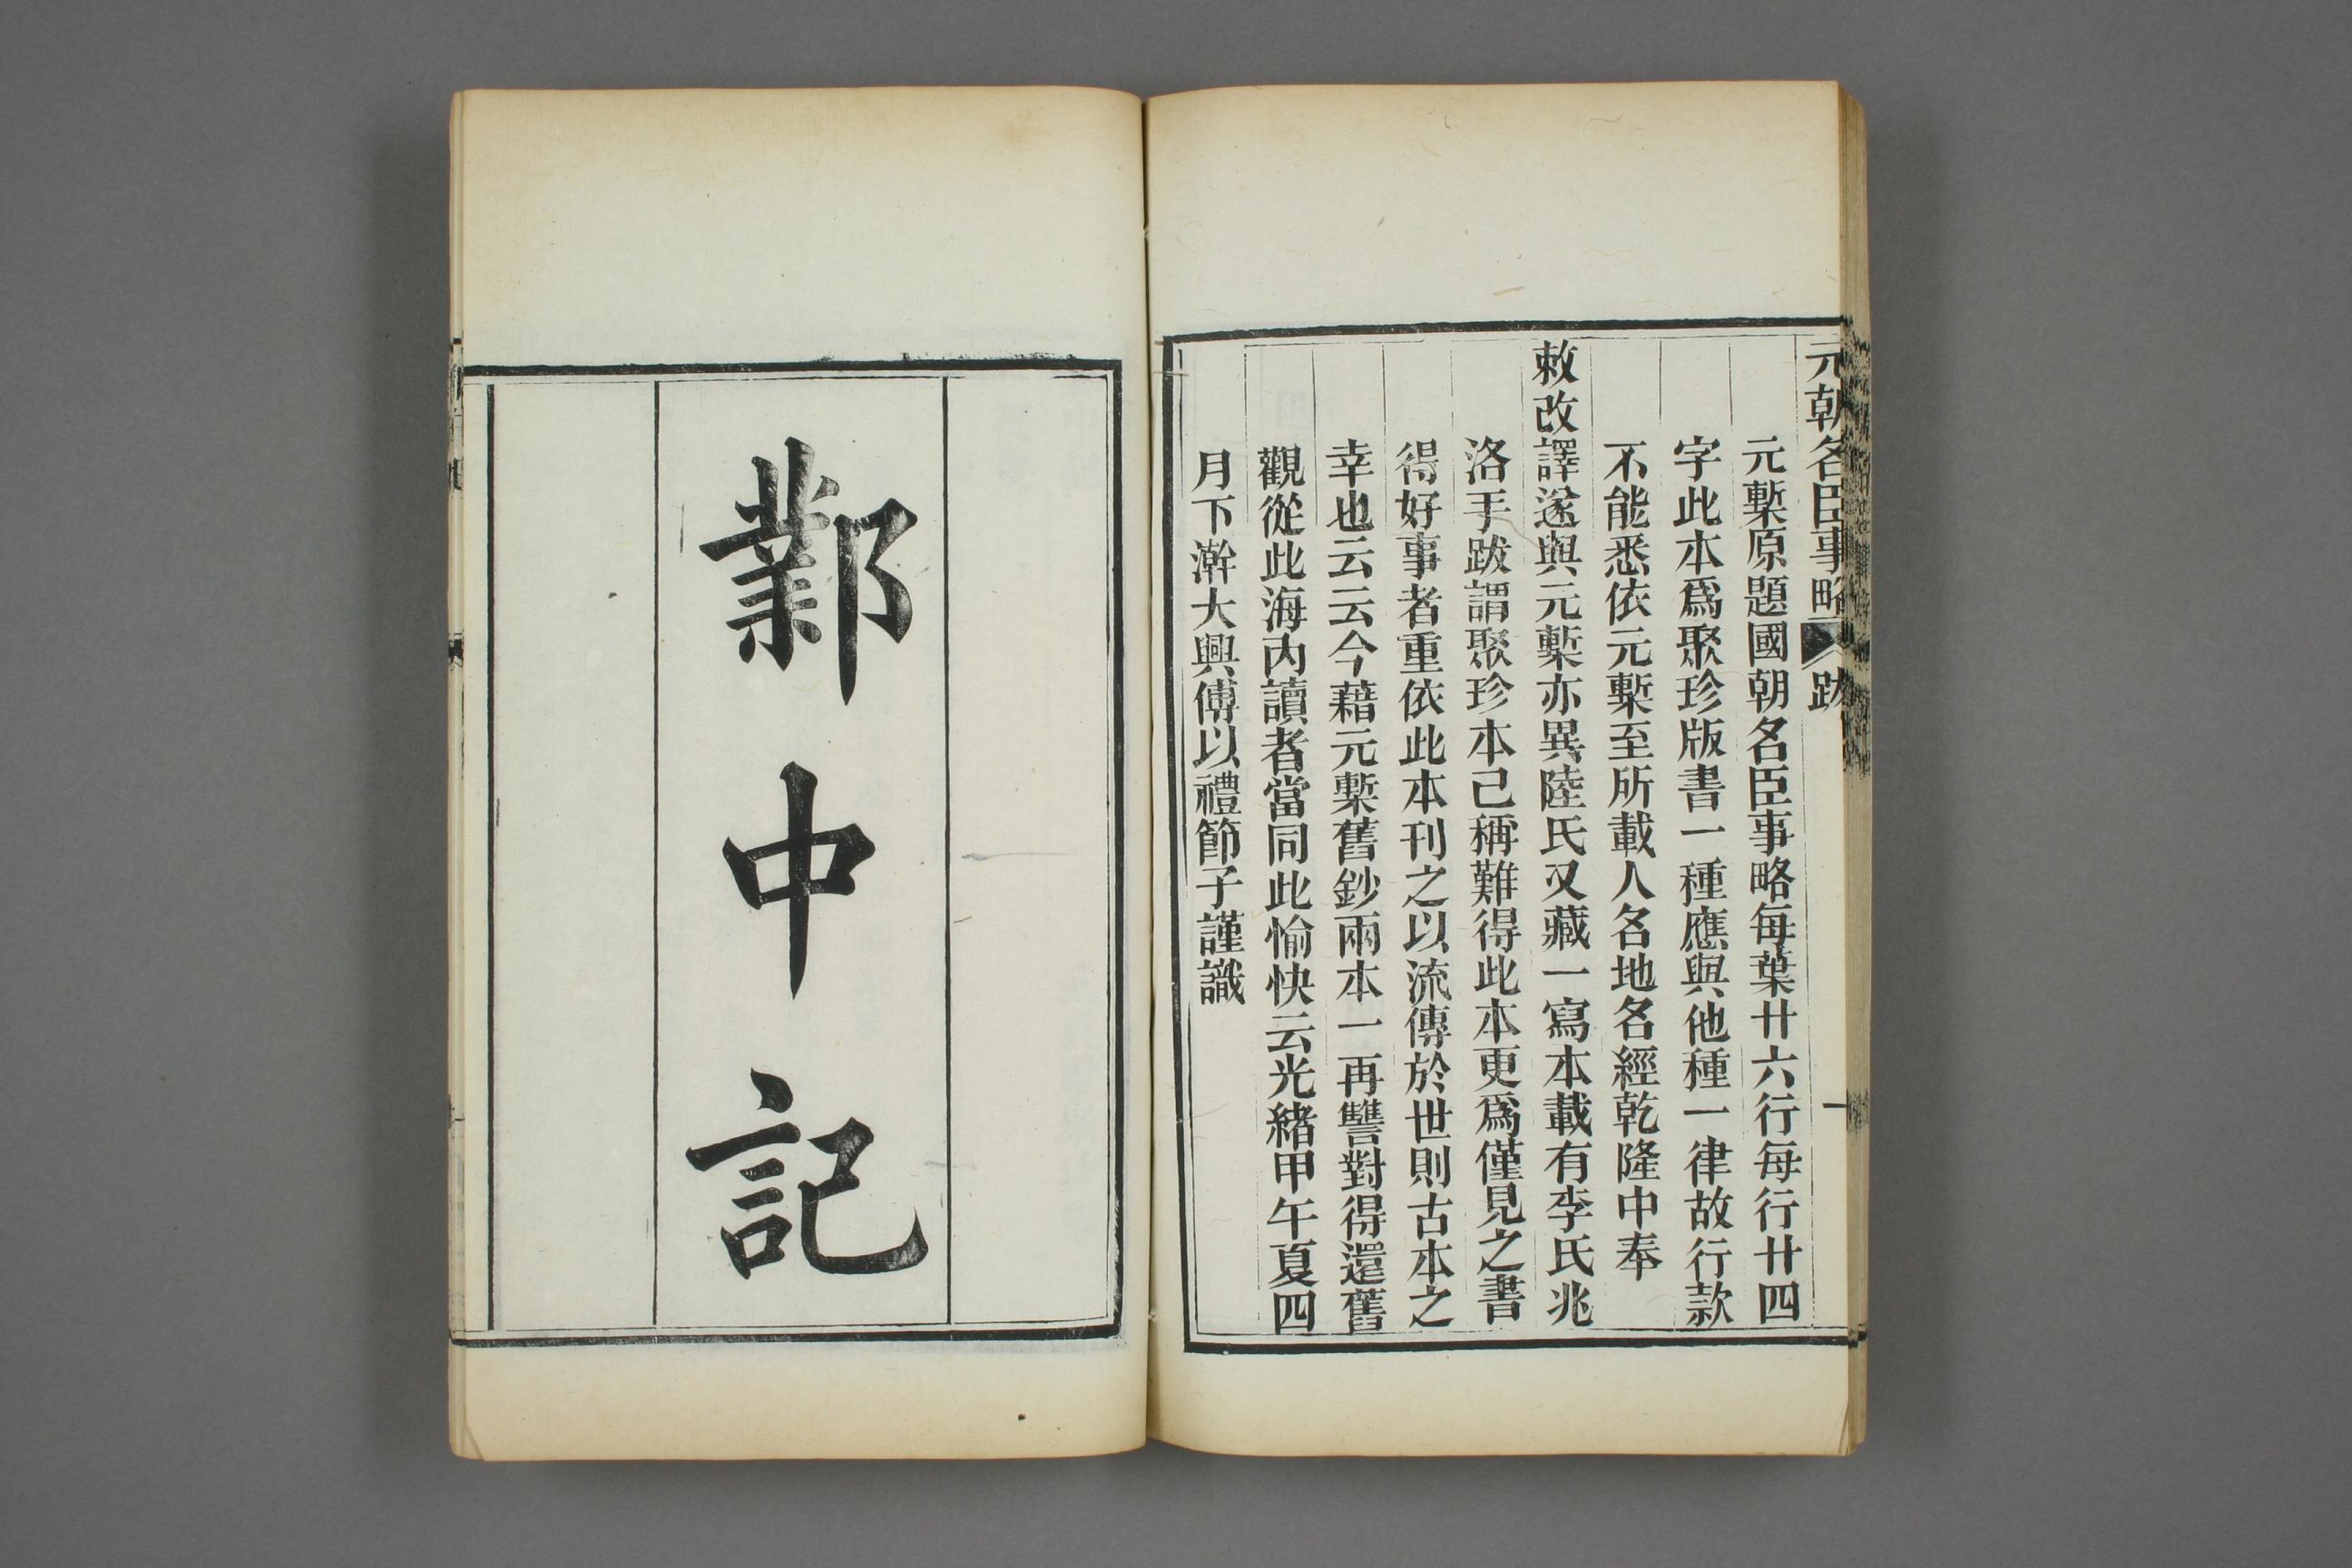 元朝名臣事略 跋 一
元槧原題國朝名臣事略每葉廿六行每行廿四
字此本爲聚珍版書一種應與他種一律故行款
不能悉依元槧至所載人名地名經乾隆中奉
敕改譯遂與元槧亦異陸氏又藏一寫本載有李氏兆
洛手跋謂聚珍本已稱難得此本更爲僅見之書
得好事者重依此本刊之以流傳於世則古本之
幸也云云今藉元槧舊鈔兩本一再讐對得還舊
觀從此海內讀者當同此愉快云光緒甲午夏四
月下澣大興傅以禮節子謹識
鄴中記